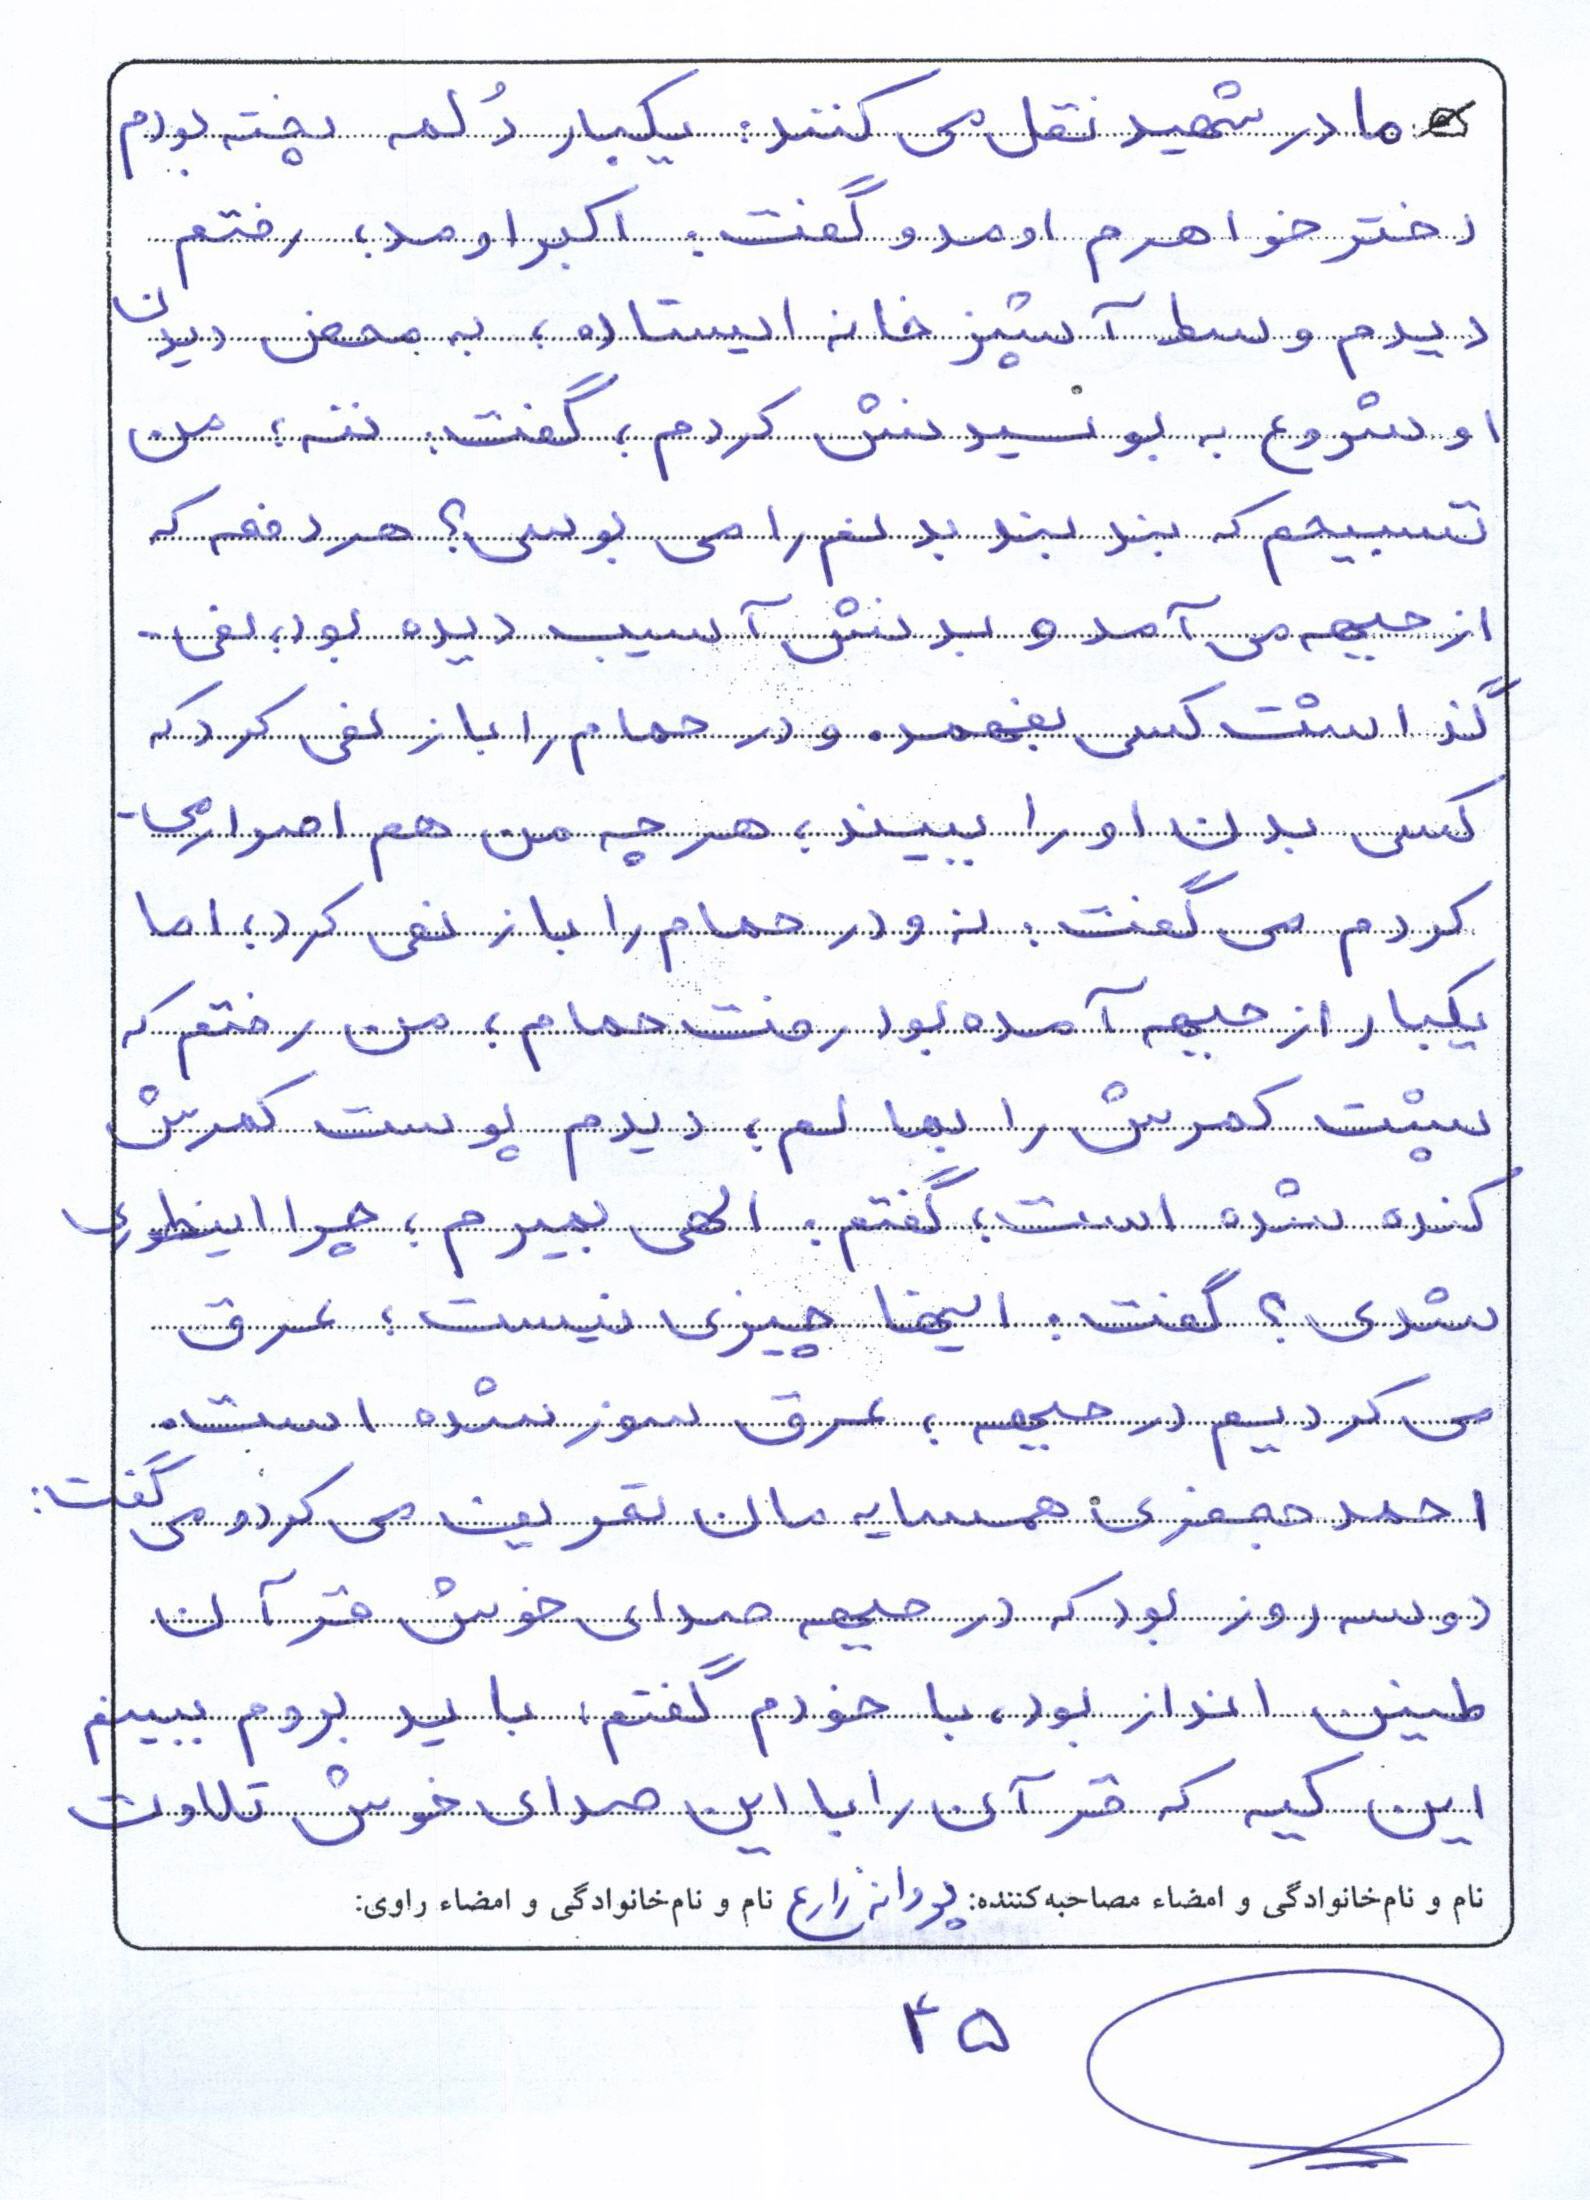 مادر شهید نقل می کنند: یکبار دُلمه پخته بودم
دختر خواهرم اومد و گفت: اکبر اومد، رفتم
دیدم وسط آشپزخانه ایستاده، به محض دیدن
او شروع به بوسیدنش کردم؛ گفت: ننه؛ من
تسبیحم که بند بند بدنم را می بوسی؟ هر دفعه که
از جبهه می آمد و بدنش آسیب دیده بود، نمی-
گذاشت کسی بفهمد. و در حمام را باز نمی کرد که
کسی بدن او را ببیند؛ هر چه من هم اصرار می-
کردم می گفت: نه و در حمام را باز نمی کرد؛ اما
یکبار از جبهه آمده بود رفت حمام؛ من رفتم که
پشت کمرش را بمالم؛ دیدم پوست کمرش
کنده شده است؛ گفتم: الهی بمیرم؛ چرا اینطوری
شدی؟ گفت: اینها چیزی نیست؛ عرق
می کردیم در جبهه؛ عرق سوز شده است.
احمد جعفری همسایه مان تعریف می کرد و می گفت:
دو سه روز بود که در جبهه صدای خوش قرآن
طنین انداز بود، با خودم گفتم: باید بروم ببینم
این کیه که قرآن را با این صدای خوش تلاوت
نام و نام‌خانوادگی و امضاء مصاحبه‌کننده: پروانه زارع نام و نام‌خانوادگی و امضاء راوی:
۴۵